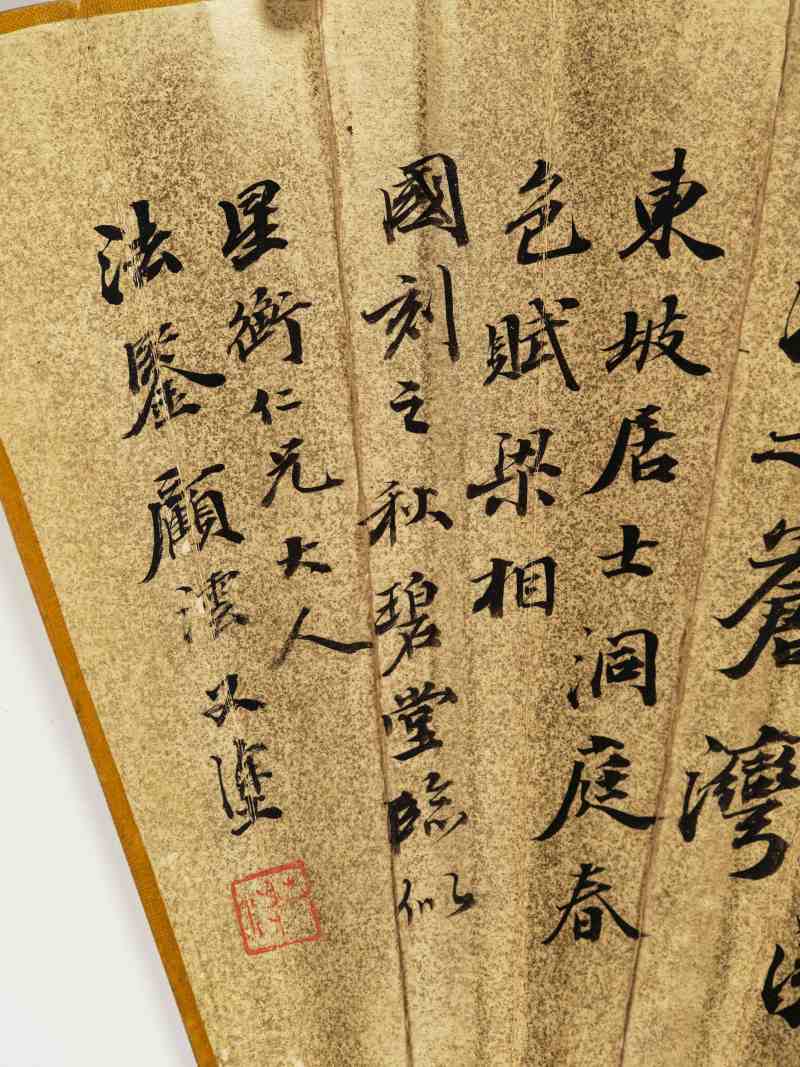 之蒼灣
東坡居士洞庭春
色賦梁相
國刻之秋碧堂臨似
星衡仁兄大人
法鋻顧澐又塗